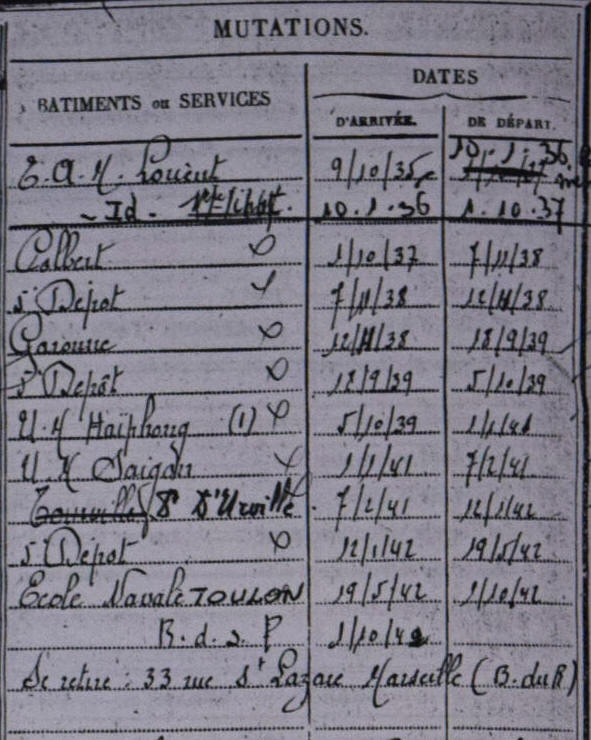 MUTATIONS.
BATIMENTS ou SERVICES
DATES
D'ARRIVÉE.
DE DÉPART.
E.A.M. Lorient 9/10/35 10.1.36
- Id - 10.1.36 1.10.37
Colbert 1/10/37 7/11/38
5e Dépot 7/11/38 12/11/38
Garonne 12/11/38 18/9/39
5e Depôt 18/9/39 5/10/39
U.M Haïphong (1) 5/10/39 1/1/41
U.M Saigon 1/1/41 7/2/41
Tourville Dt D'Urville 7/2/41 12/1/42
5e Dépot 12/1/42 19/5/42
Ecole Navale TOULON 19/5/42 1/10/42
R.d.s.F 1/10/42
Se retire : 33 rue St Lazare Marseille (B.du R)